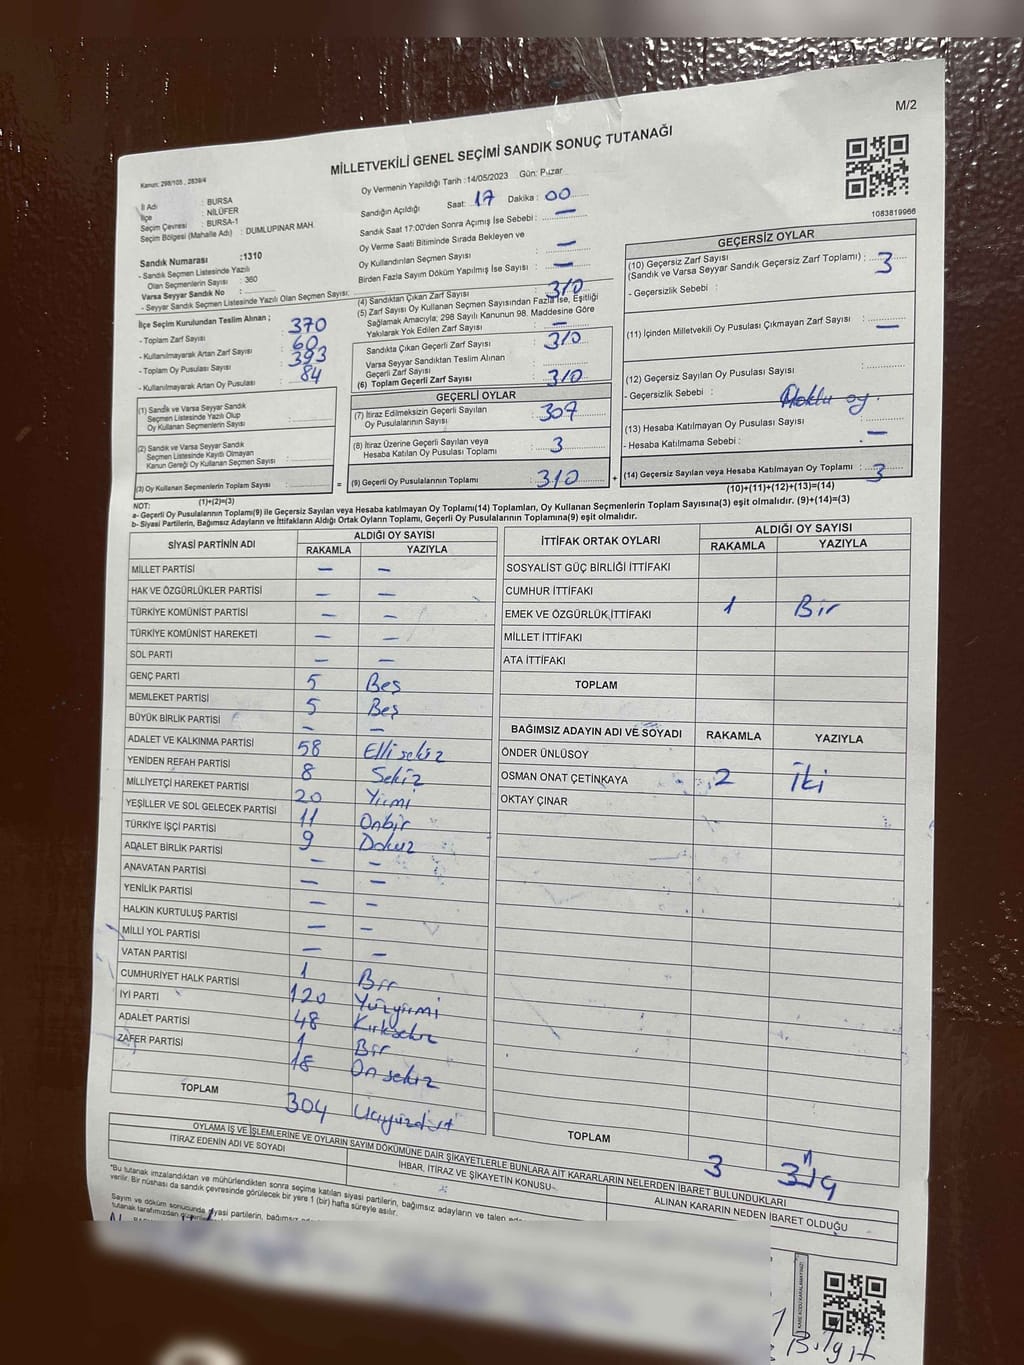 M/2
MİLLETVEKİLİ GENEL SEÇİMİ SANDIK SONUÇ TUTANAĞI
Kanun: 298/105 , 2839/4
Oy Vermenin Yapıldığı Tarih :14/05/2023 Gün: Pazar
İl Adı : BURSA
İlçe : NİLÜFER
Seçim Çevresi : BURSA-1
Seçim Bölgesi (Mahalle Adı) : DUMLUPINAR MAH.
Sandığın Açıldığı Saat: 17 Dakika : 00
Sandık Saat 17:00'den Sonra Açımış İse Sebebi : —
Oy Verme Saati Bitiminde Sırada Bekleyen ve
Oy Kullandırılan Seçmen Sayısı : —
Birden Fazla Sayım Döküm Yapılmış İse Sayısı : —
1083819966
Sandık Numarası :1310
- Sandık Seçmen Listesinde Yazılı
Olan Seçmenlerin Sayısı : 360
Varsa Seyyar Sandık No :
- Seyyar Sandık Seçmen Listesinde Yazılı Olan Seçmen Sayısı:
İlçe Seçim Kurulundan Teslim Alınan ;
- Toplam Zarf Sayısı : 370
- Kullanılmayarak Artan Zarf Sayısı : 60
- Toplam Oy Pusulası Sayısı : 393
- Kullanılmayarak Artan Oy Pusulası : 84
(1) Sandık ve Varsa Seyyar Sandık
Seçmen Listesinde Yazılı Olup
Oy Kullanan Seçmenlerin Sayısı :
(2) Sandık ve Varsa Seyyar Sandık
Seçmen Listesinde Kayıtlı Olmayan
Kanun Gereği Oy Kullanan Seçmen Sayısı :
(3) Oy Kullanan Seçmenlerin Toplam Sayısı : =
(1)+(2)=(3)
(4) Sandıktan Çıkan Zarf Sayısı : 310
(5) Zarf Sayısı Oy Kullanan Seçmen Sayısından Fazla İse, Eşitliği
Sağlamak Amacıyla; 298 Sayılı Kanunun 98. Maddesine Göre
Yakılarak Yok Edilen Zarf Sayısı : —
Sandıkta Çıkan Geçerli Zarf Sayısı : 310
Varsa Seyyar Sandıktan Teslim Alınan
Geçerli Zarf Sayısı :
(6) Toplam Geçerli Zarf Sayısı : 310
GEÇERLİ OYLAR
(7) İtiraz Edilmeksizin Geçerli Sayılan
Oy Pusulalarının Sayısı : 307
(8) İtiraz Üzerine Geçerli Sayılan veya
Hesaba Katılan Oy Pusulası Toplamı : 3
(9) Geçerli Oy Pusulalarının Toplamı : 310 +
GEÇERSİZ OYLAR
(10) Geçersiz Zarf Sayısı
(Sandık ve Varsa Seyyar Sandık Geçersiz Zarf Toplamı) : 3
- Geçersizlik Sebebi :
(11) İçinden Milletvekili Oy Pusulası Çıkmayan Zarf Sayısı : —
(12) Geçersiz Sayılan Oy Pusulası Sayısı :
- Geçersizlik Sebebi : oy.
(13) Hesaba Katılmayan Oy Pusulası Sayısı : —
- Hesaba Katılmama Sebebi :
(14) Geçersiz Sayılan veya Hesaba Katılmayan Oy Toplamı : 3
(10)+(11)+(12)+(13)=(14)
NOT:
a- Geçerli Oy Pusulalarının Toplamı(9) ile Geçersiz Sayılan veya Hesaba katılmayan Oy Toplamı(14) Toplamları, Oy Kullanan Seçmenlerin Toplam Sayısına(3) eşit olmalıdır. (9)+(14)=(3)
b- Siyasi Partilerin, Bağımsız Adayların ve İttifakların Aldığı Ortak Oyların Toplamı, Geçerli Oy Pusulalarının Toplamına(9) eşit olmalıdır.
SİYASİ PARTİNİN ADI ALDIĞI OY SAYISI
RAKAMLA YAZIYLA
MİLLET PARTİSİ — —
HAK VE ÖZGÜRLÜKLER PARTİSİ — —
TÜRKİYE KOMÜNİST PARTİSİ — —
TÜRKİYE KOMÜNİST HAREKETİ — —
SOL PARTİ — —
GENÇ PARTİ 5 Beş
MEMLEKET PARTİSİ 5 Beş
BÜYÜK BİRLİK PARTİSİ — —
ADALET VE KALKINMA PARTİSİ 58 Elli sekiz
YENİDEN REFAH PARTİSİ 8 Sekiz
MİLLİYETÇİ HAREKET PARTİSİ 20 Yirmi
YEŞİLLER VE SOL GELECEK PARTİSİ 11 Onbir
TÜRKİYE İŞÇİ PARTİSİ 9 Dokuz
ADALET BİRLİK PARTİSİ — —
ANAVATAN PARTİSİ — —
YENİLİK PARTİSİ — —
HALKIN KURTULUŞ PARTİSİ — —
MİLLİ YOL PARTİSİ — —
VATAN PARTİSİ 1 Bir
CUMHURİYET HALK PARTİSİ 120 Yüzyirmi
İYİ PARTİ 48 Kırksekiz
ADALET PARTİSİ 1 Bir
ZAFER PARTİSİ 18 On sekiz
TOPLAM 304 Üçyüzdört
İTTİFAK ORTAK OYLARI ALDIĞI OY SAYISI
RAKAMLA YAZIYLA
SOSYALİST GÜÇ BİRLİĞİ İTTİFAKI
CUMHUR İTTİFAKI
EMEK VE ÖZGÜRLÜK İTTİFAKI 1 Bir
MİLLET İTTİFAKI
ATA İTTİFAKI
TOPLAM
BAĞIMSIZ ADAYIN ADI VE SOYADI RAKAMLA YAZIYLA
ÖNDER ÜNLÜSOY
OSMAN ONAT ÇETİNKAYA 2 İki
OKTAY ÇINAR
TOPLAM 3
OYLAMA İŞ VE İŞLEMLERİNE VE OYLARIN SAYIM DÖKÜMÜNE DAİR ŞİKAYETLERLE BUNLARA AİT KARARLARIN NELERDEN İBARET BULUNDUKLARI
İTİRAZ EDENİN ADI VE SOYADI İHBAR, İTİRAZ VE ŞİKAYETİN KONUSU ALINAN KARARIN NEDEN İBARET OLDUĞU
*Bu tutanak imzalandıktan ve mühürlendikten sonra seçime katılan siyasi partilerin, bağımsız adayların ve talen
verilir. Bir nüshası da sandık çevresinde görülecek bir yere 1 (bir) hafta süreyle asılır.
Sayım ve döküm sonucunda siyasi partilerin, bağımsız
tutanak tarafımızdan